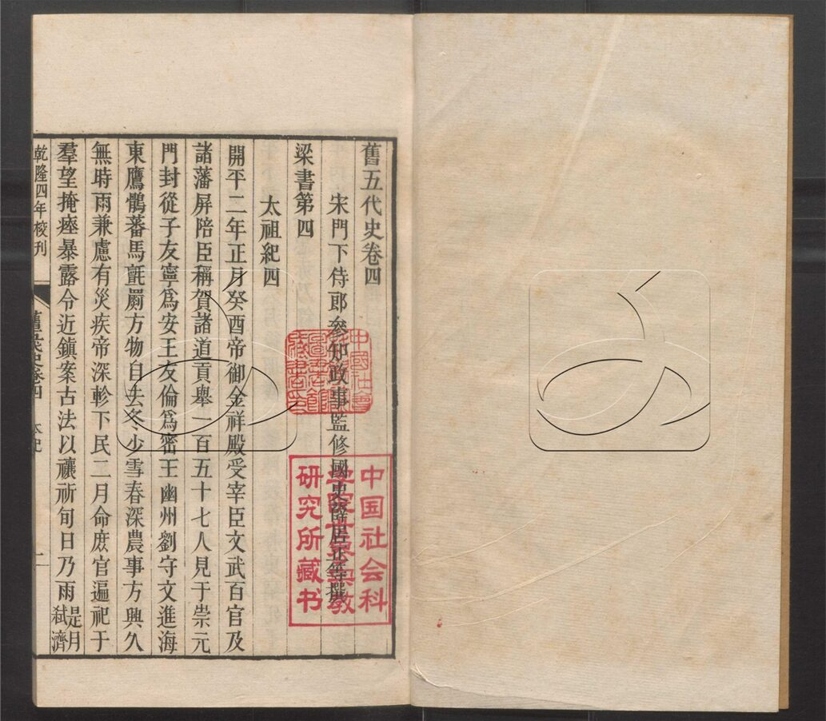 舊五代史卷四
宋門下侍郎參知政事監修國史薛居正等撰
梁書第四
太祖紀四
開平二年正月癸酉帝御金祥殿受宰臣文武百官及
諸藩屏陪臣稱賀諸道貢舉一百五十七人見于崇元
門封從子友寧爲安王友倫爲密王幽州劉守文進海
東鷹鶻蕃馬氈罽方物自去冬少雪春深農事方興久
無時雨兼慮有災疾帝深軫下民二月命庶官遍祀于
羣望掩瘞暴露令近鎮案古法以禳祈旬日乃雨是月
弑濟
乾隆四年校刊
中国社会科
研究所藏书